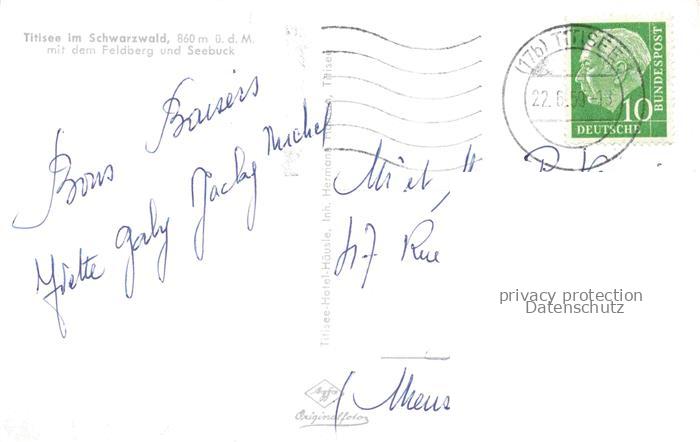 Titisee im Schwarzwald, 860 m ü. d. M.
mit dem Feldberg und Seebuck
Bons Baisers
Yvette Gaby Jacky Michel
Titisee-Hotel-Häusle, Inh. Hermann Titisee
(17b) TITISEE
22.6.59
10
DEUTSCHE
BUNDESPOST
Mr et
47 Rue
privacy protection
Datenschutz
Agfa
Originalfoto